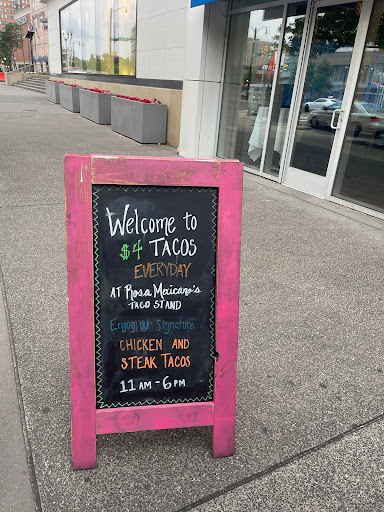 Welcome to
$4 TACOS
EVERYDAY
AT Rosa Mexicano's
TACO STAND
Enjoy our Signature
CHICKEN AND
STEAK TACOS
11 AM - 6 PM